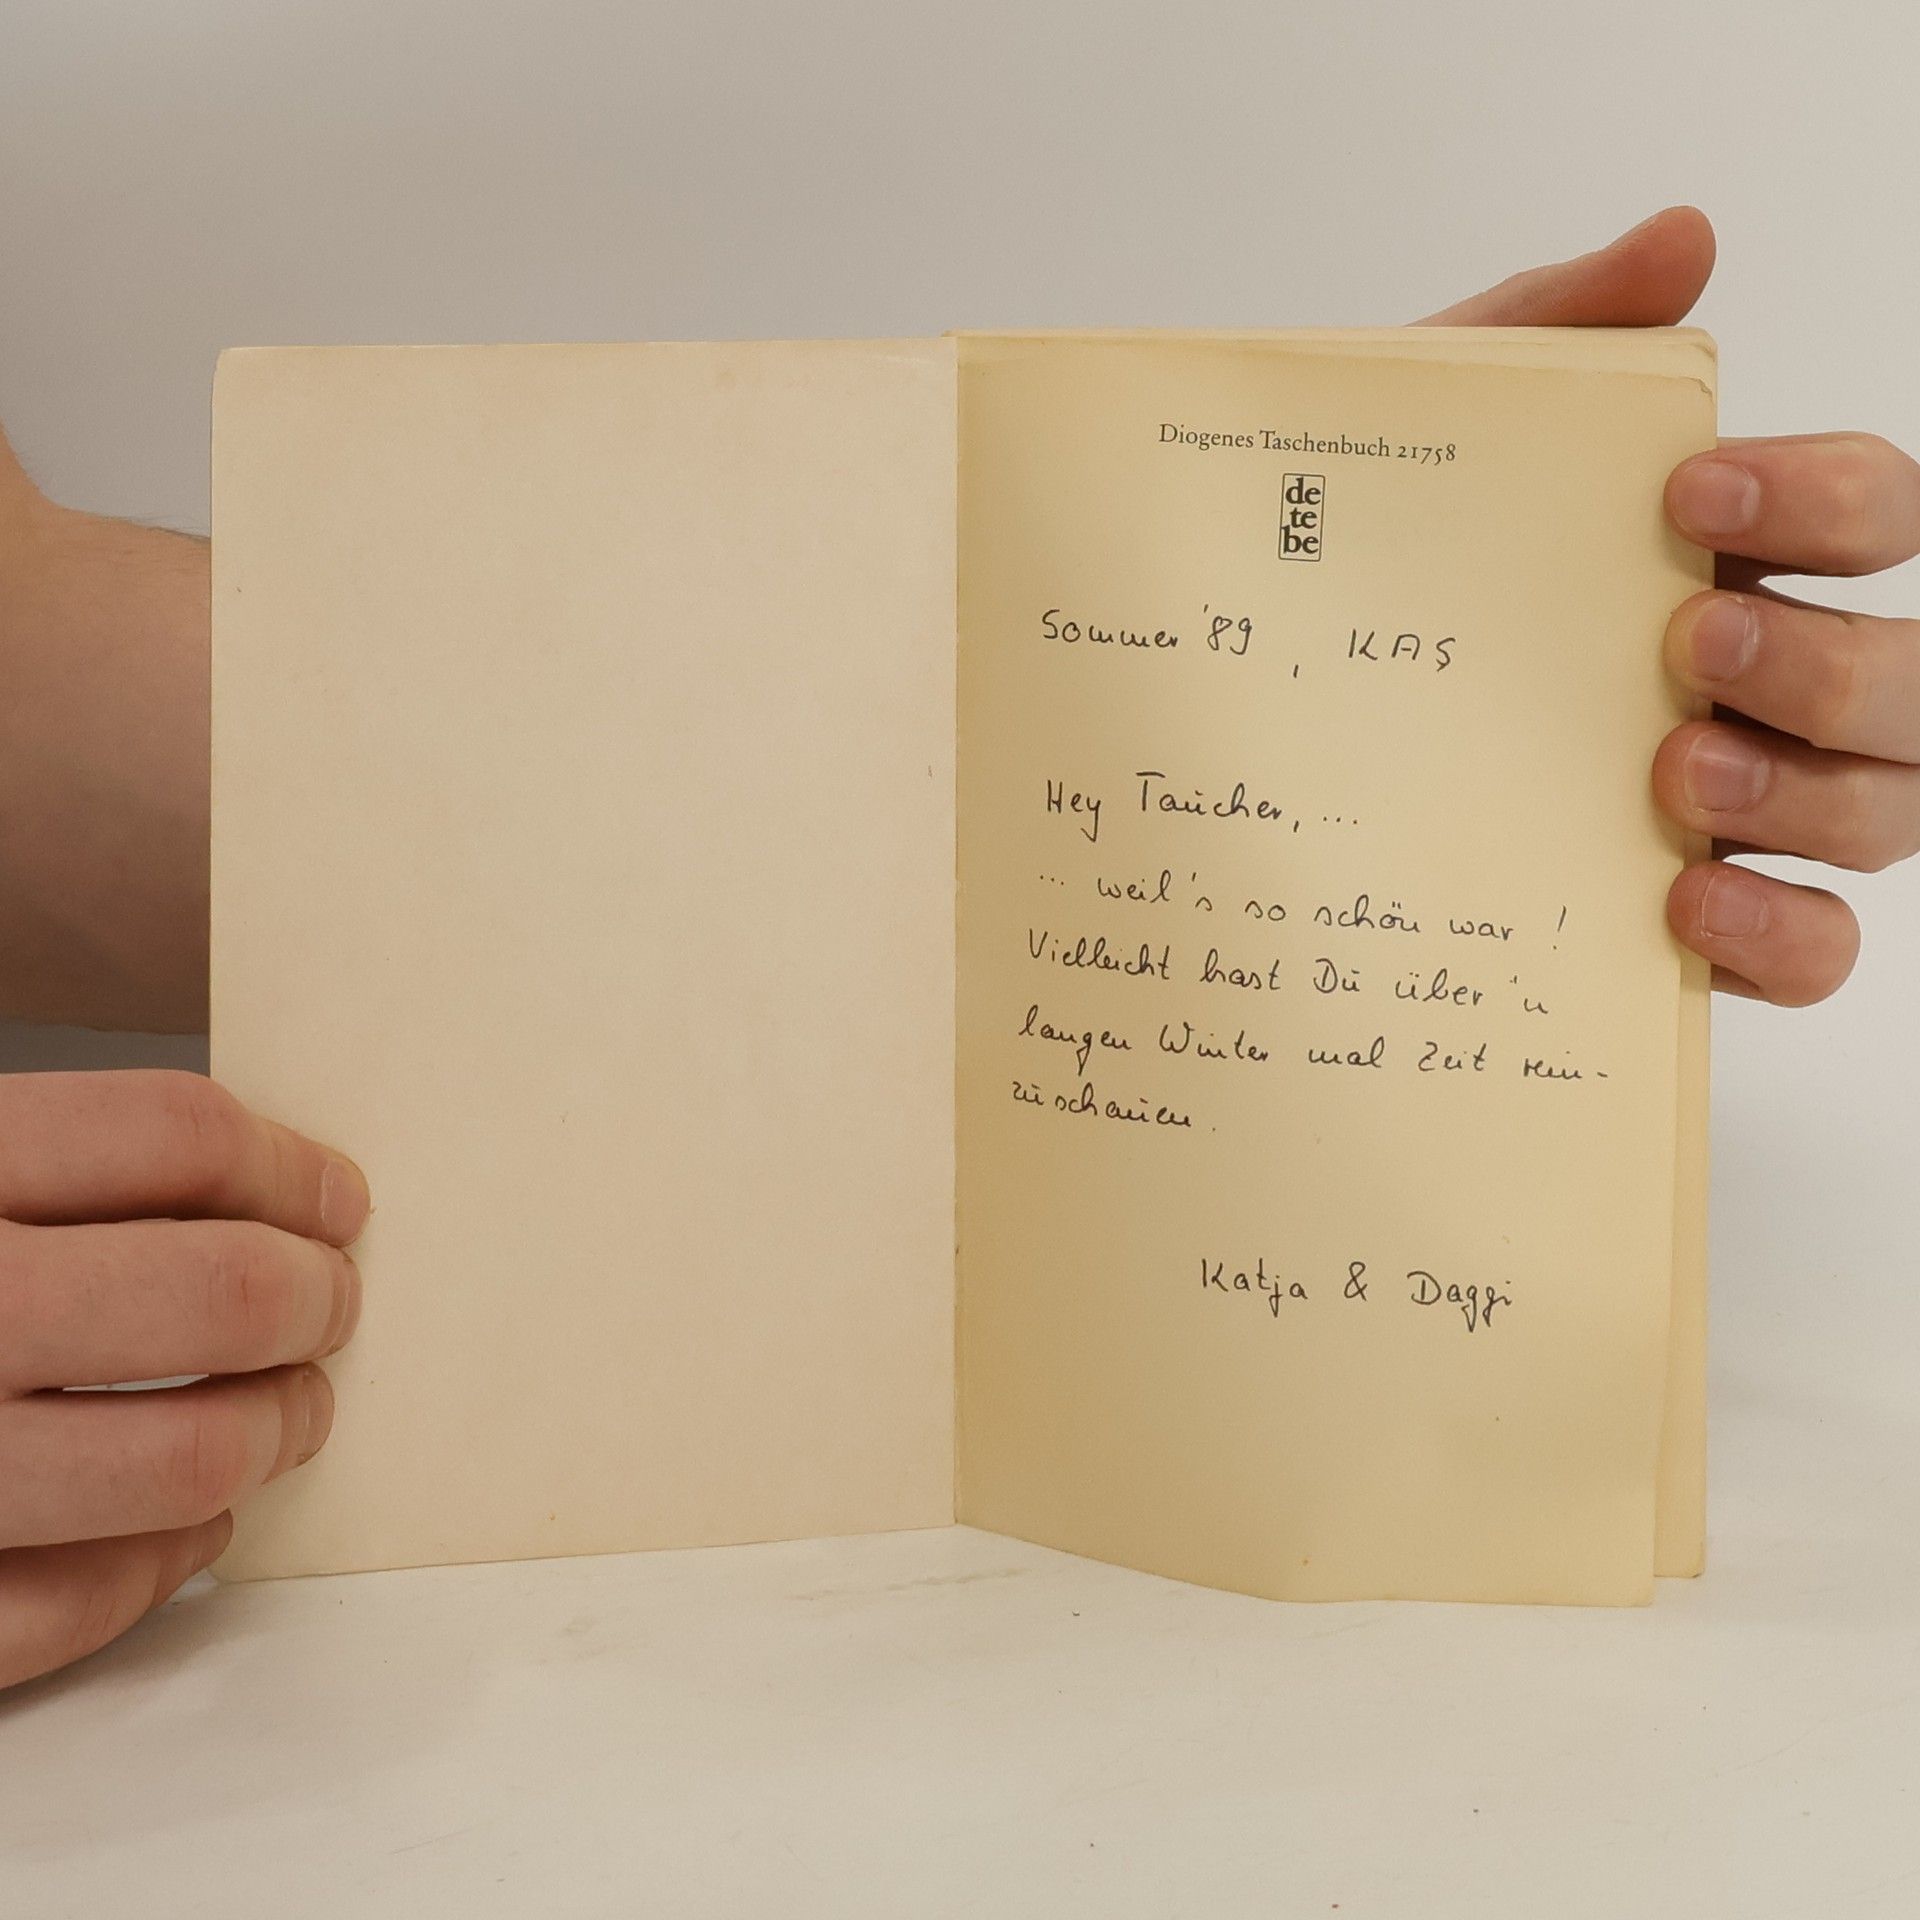 Diogenes Taschenbuch 21758
de
te
be
Sommer '89, KAŞ
Hey Taucher, ...
... weil's so schön war!
Vielleicht hast Du über 'n
langen Winter mal Zeit rein-
zuschauen.
Katja & Daggi